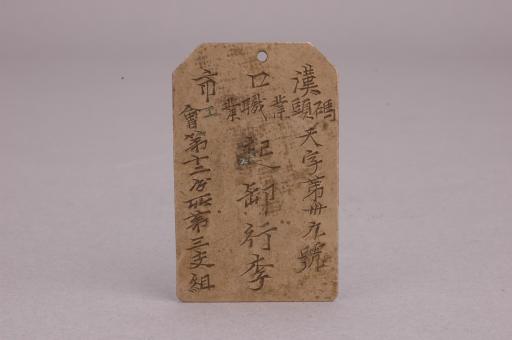 漢口市
碼頭業職業工會
天字第卅九號
起卸行李
第十二分所第三支組